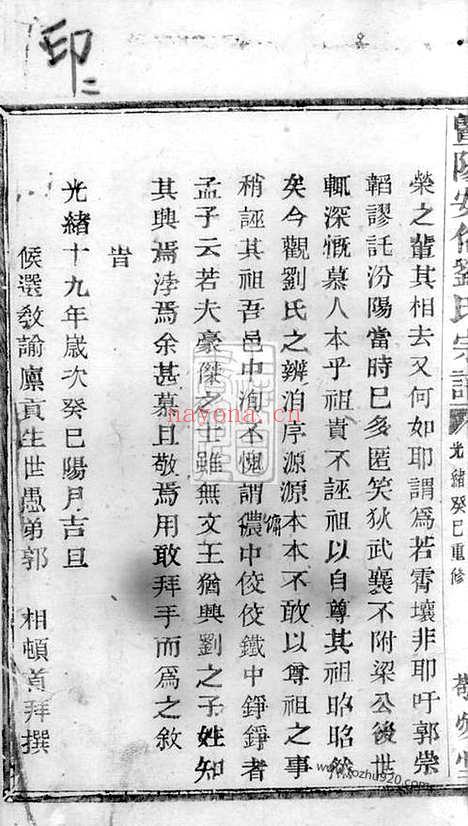 印二
暨陽安俗劉氏宗譜 光緒癸巳重修
榮之輩其相去又何如耶謂為若霄壤非耶吁郭崇
韜謬託汾陽當時已多匿笑狄武襄不附梁公後世
輒深慨慕人本乎祖貴不誣祖以自尊其祖昭昭然
矣今觀劉氏之辨泊序源源本本不敢以尊祖之事
稍誣其祖吾邑中洵不愧謂儂中佼佼鐵中錚錚者
傭
孟子云若夫豪傑之士雖無文王猶興劉之子姓知
其興焉浡焉余甚慕且敬焉用敢拜手而為之敘
旹
光緒十九年歲次癸巳陽月吉旦
候選教諭廩貢生世愚弟郭 相頓首拜撰
nayona.cn
www.kozhu920.com